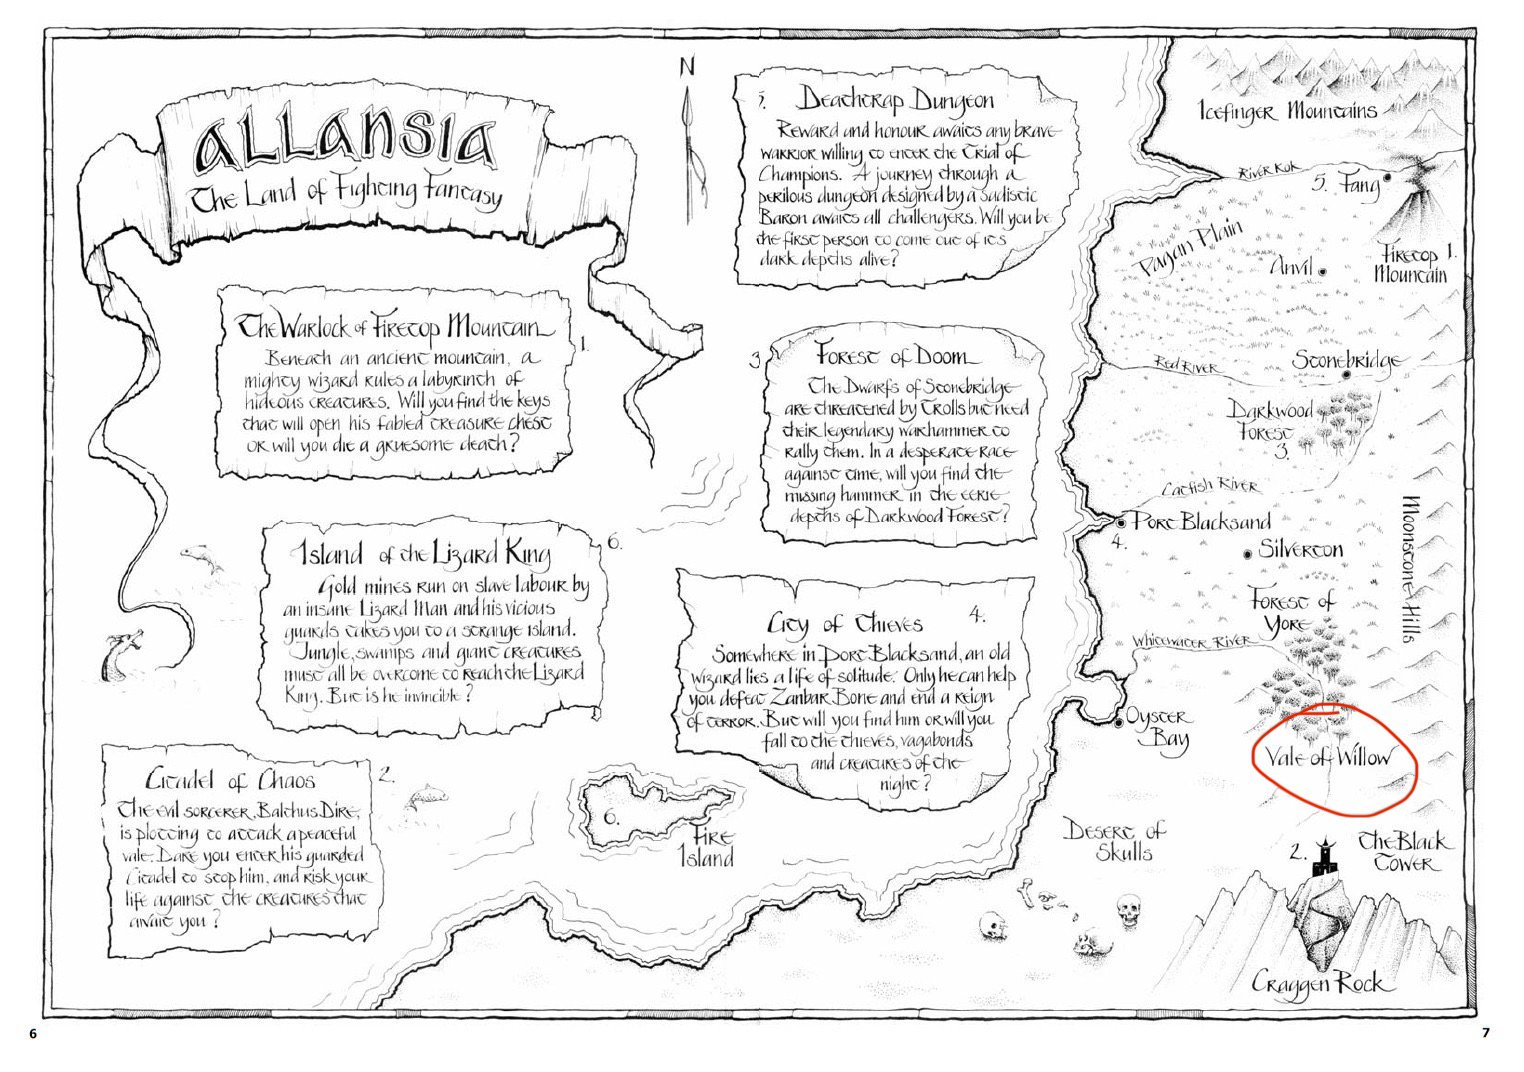 ALLANSIA
The Land of Fighting Fantasy
N
5. Deathtrap Dungeon
Reward and honour awaits any brave
warrior willing to enter the Trial of
Champions. A journey through a
perilous dungeon designed by a sadistic
Baron awaits all challengers. Will you be
the first person to come out of its
dark depths alive?
The Warlock of Firetop Mountain
1.
Beneath an ancient mountain, a
mighty wizard rules a labyrinth of
hideous creatures. Will you find the keys
that will open his fabled treasure chest
or will you die a gruesome death?
3. Forest of Doom
The Dwarfs of Stonebridge
are threatened by Trolls but need
their legendary warhammer to
rally them. In a desperate race
against time, will you find the
missing hammer in the eerie
depths of Darkwood Forest?
Island of the Lizard King
6.
Gold mines run on slave labour by
an insane Lizard Man and his vicious
guards takes you to a strange island.
Jungle, swamps and giant creatures
must all be overcome to reach the Lizard
King. But is he invincible?
City of Thieves
4.
Somewhere in Port Blacksand, an old
wizard lies a life of solitude. Only he can help
you defeat Zanbar Bone and end a reign
of terror. But will you find him or will you
fall to the thieves, vagabonds
and creatures of the
night?
Citadel of Chaos
2.
The evil sorcerer, Balthus Dire,
is plotting to attack a peaceful
vale. Dare you enter his guarded
Citadel to stop him, and risk your
life against the creatures that
await you?
6.
Fire
Island
Icefinger Mountains
River Kok
5. Fang
Pagan Plain
Anvil
Firetop 1.
Mountain
Red River
Stonebridge
Darkwood
Forest
3.
Catfish River
Port Blacksand
4.
Silverton
Moonstone Hills
Forest of
Yore
Whitewater River
Oyster
Bay
Vale of Willow
Desert of
Skulls
2.
The Black
Tower
Craggen Rock
6
7